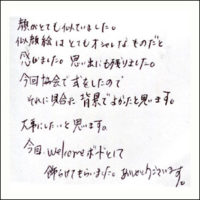 顔がとても似ていました。
似顔絵はとてもオシャレなものだと
感じました。思い出にも残りました。
今回協会で式をしたので
それに似合った背景でよかったと思います。
大事にしたいと思います。
今回、welcomeボードとして
飾らせてもらいました。ありがとうございます。